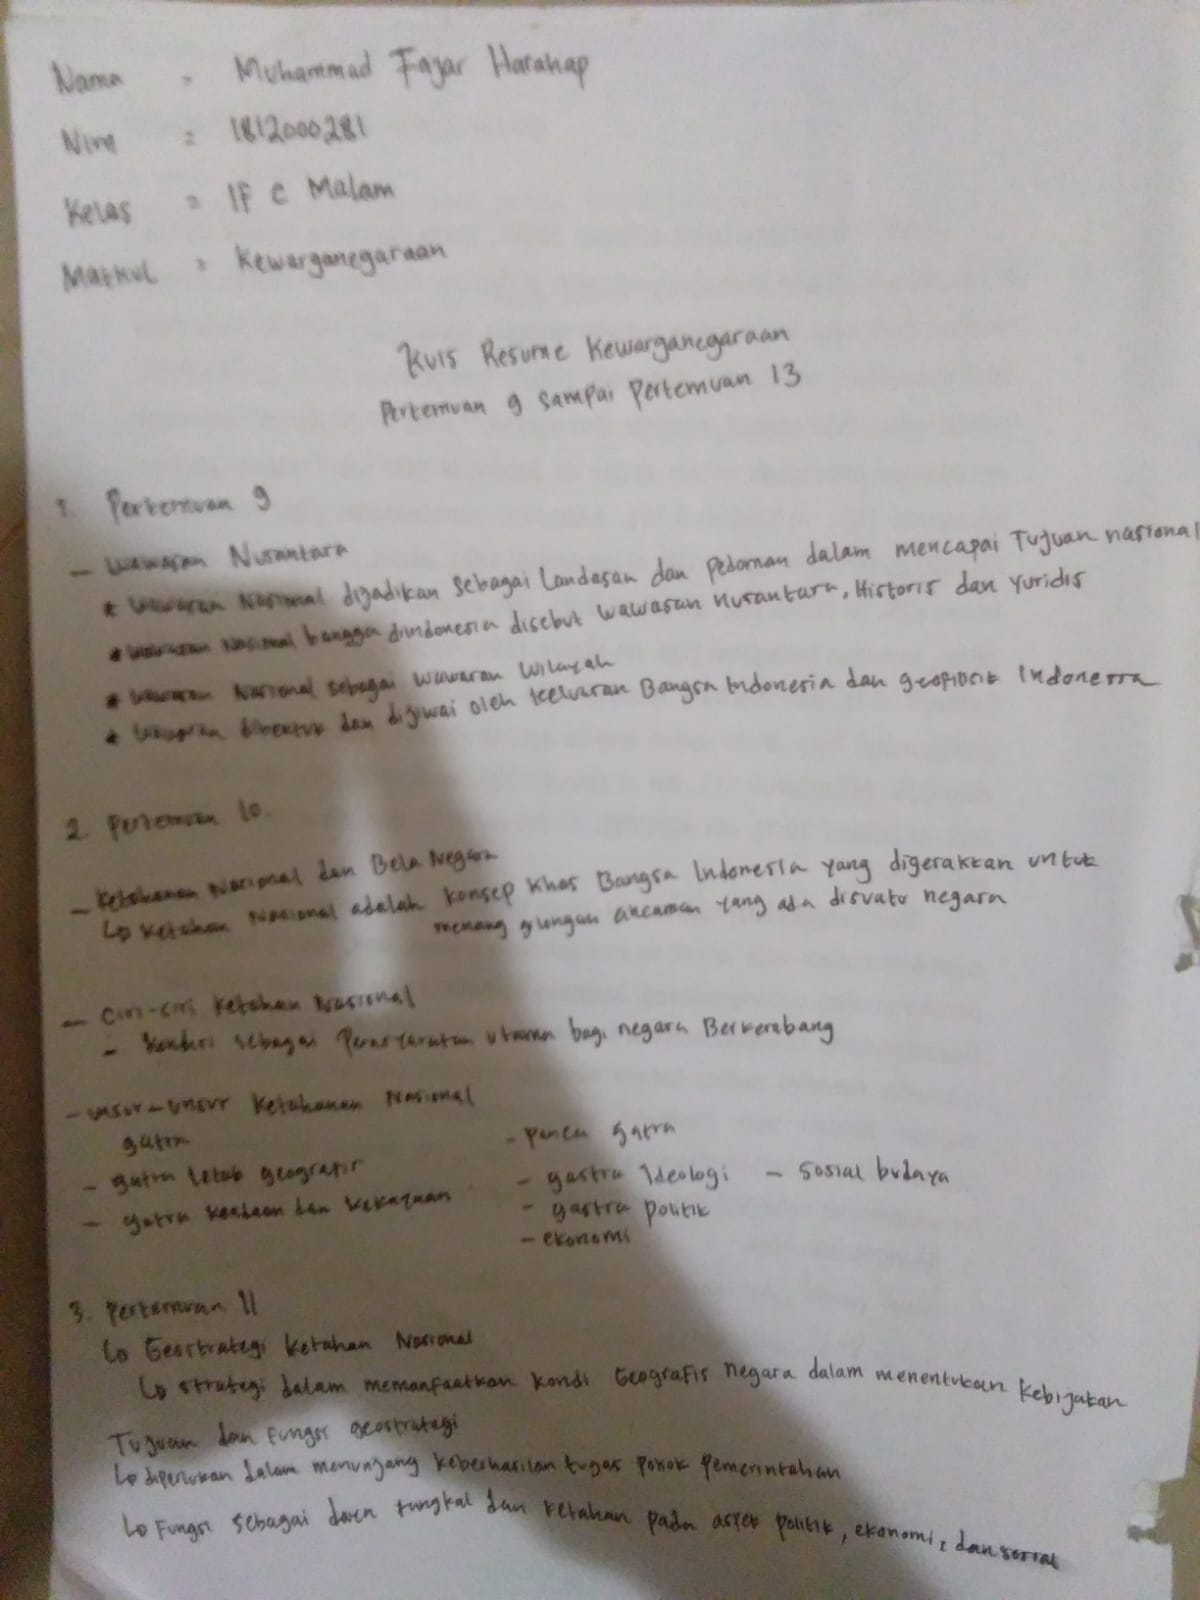 Nama = Muhammad Fajar Harahap
Nim = 1812000281
Kelas = IF C Malam
Matkul = Kewarganegaraan
Kuis Resume Kewarganegaraan
Pertemuan 9 sampai Pertemuan 13
1. Pertemuan 9
- Wawasan Nusantara
* Wawasan Nasional dijadikan sebagai Landasan dan pedoman dalam mencapai Tujuan nasional
* Wawasan Nasional bangga diindonesia disebut wawasan nusantara, Historis dan yuridis
* Wawasan Nasional sebagai wawasan wilayah
* dibentuk dan dijiwai oleh Bangsa Indonesia dan Indonesia
2. Pertemuan 10.
- Ketahanan Nasional dan Bela Negara
↳ Ketahan Nasional adalah konsep khas Bangsa Indonesia yang digerakkan untuk
ancaman yang ada disuatu negara
- Ciri-ciri Ketahan Nasional
- Kondisi sebagai utama bagi negara Berkembang
- unsur-unsur Ketahanan Nasional
gatra - panca gatra
- gatra letak geografis - gastra Ideologi - Sosial budaya
- gatra dan kekayaan - gastra politik
- ekonomi
3. Pertemuan 11
↳ Geostrategi Ketahan Nasional
↳ strategi dalam memanfaatkan kondi Geografis negara dalam menentukan Kebijakan
Tujuan dan Fungsi geostrategi
↳ diperlukan dalam menunjang keberhasilan tugas pokok pemerintahan
↳ Fungsi sebagai daya tangkal dan ketahan pada aspek politik, ekonomi, dan sosial